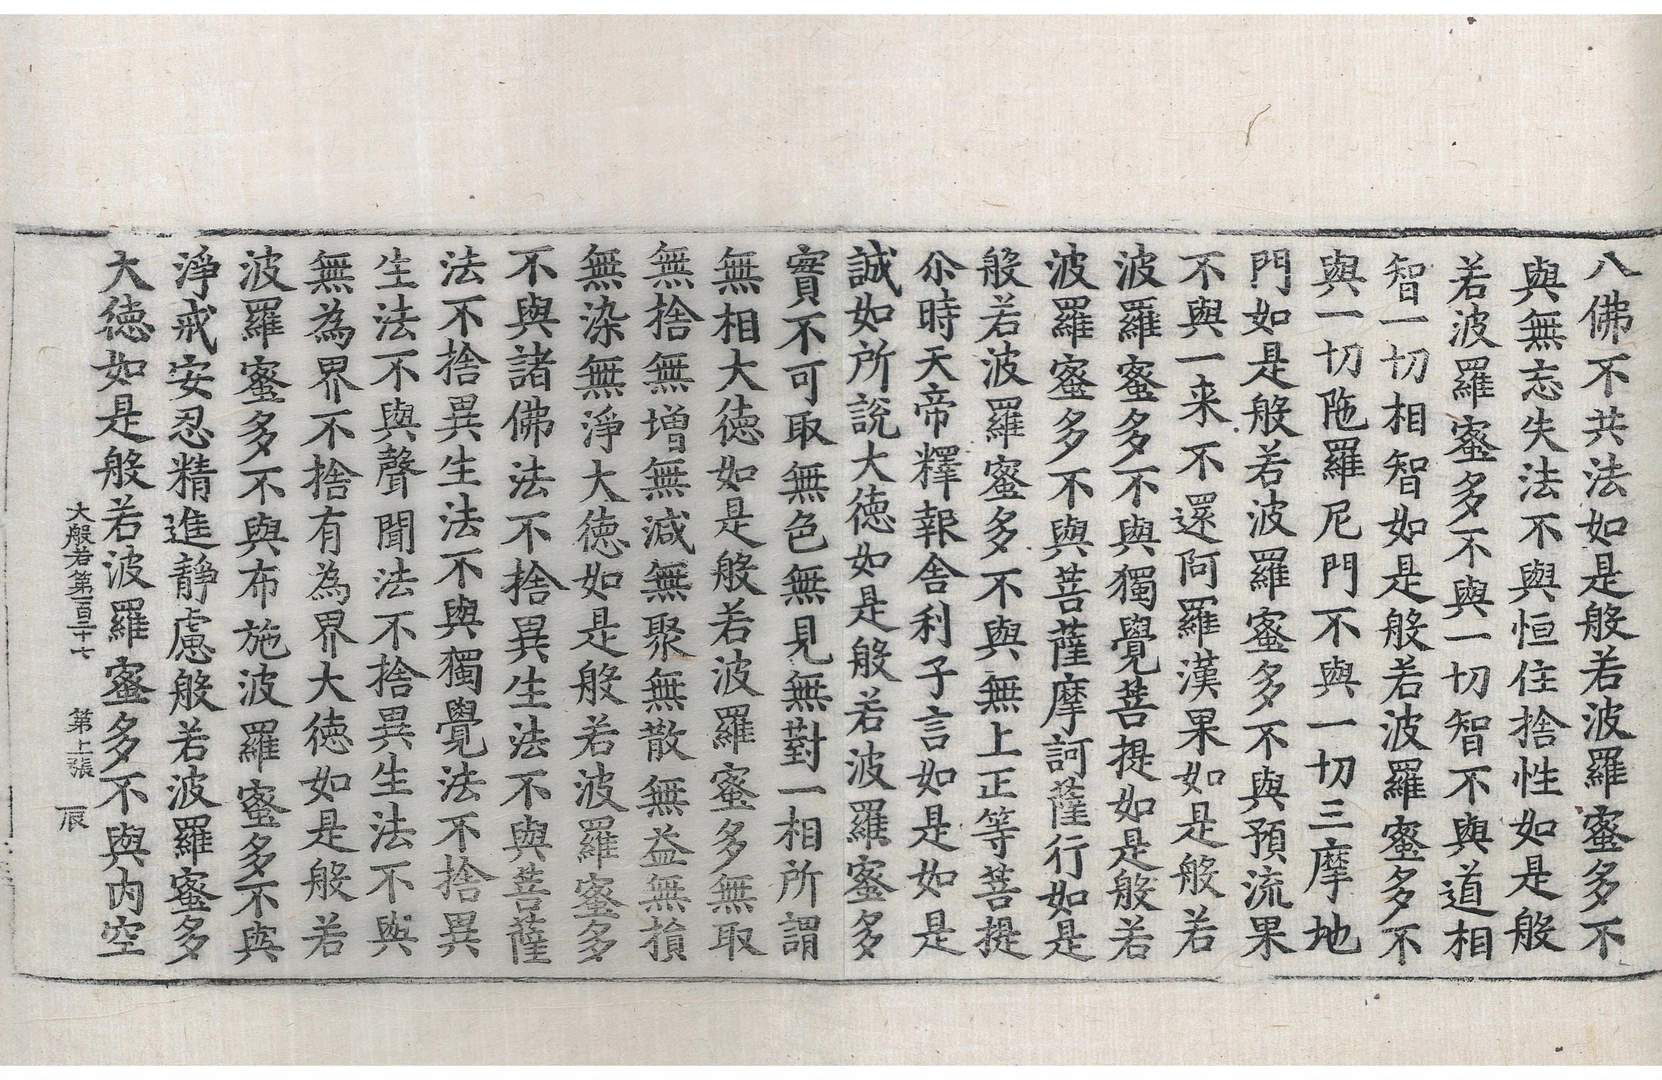 八佛不共法如是般若波羅蜜多不
與無忘失法不與恒住捨性如是般
若波羅蜜多不與一切智不與道相
智一切相智如是般若波羅蜜多不
與一切陁羅尼門不與一切三摩地
門如是般若波羅蜜多不與預流果
不與一来不還阿羅漢果如是般若
波羅蜜多不與獨覺菩提如是般若
波羅蜜多不與菩薩摩訶薩行如是
般若波羅蜜多不與無上正等菩提
尒時天帝釋報舍利子言如是如是
誠如所說大德如是般若波羅蜜多
實不可取無色無見無對一相所謂
無相大德如是般若波羅蜜多無取
無捨無增無減無聚無散無益無損
無染無淨大德如是般若波羅蜜多
不與諸佛法不捨異生法不與菩薩
法不捨異生法不與獨覺法不捨異
生法不與聲聞法不捨異生法不與
無為界不捨有為界大德如是般若
波羅蜜多不與布施波羅蜜多不與
淨戒安忍精進靜慮般若波羅蜜多
大德如是般若波羅蜜多不與内空
大般若第一百二十七 第上張 辰